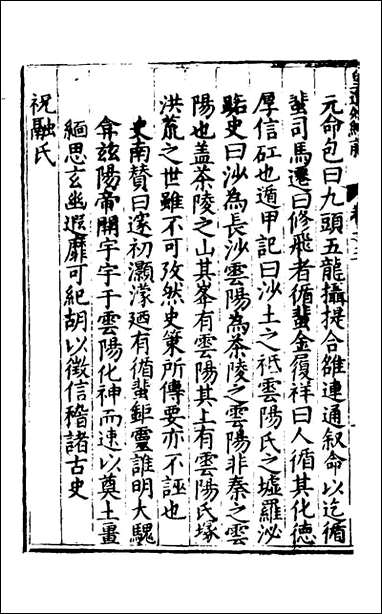 元命包曰九頭五龍攝提合雒連通叙命以迄循
蜚司馬遷曰修飛者循蜚金履祥曰人循其化德
厚信矼也遁甲記曰沙土之祇雲陽氏之墟羅泌
路史曰沙為長沙雲陽為茶陵之雲陽非秦之雲
陽也盖茶陵之山其峯有雲陽其上有雲陽氏塚
洪荒之世雖不可攷然史策所傳要亦不誣也
史南贊曰邃初灝濛廼有循蜚鉅靈誰明大騩
弇玆陽帝開宇于雲陽化神而速以奠土畺
緬思玄幽遐靡可紀胡以徵信稽諸古史
祝融氏